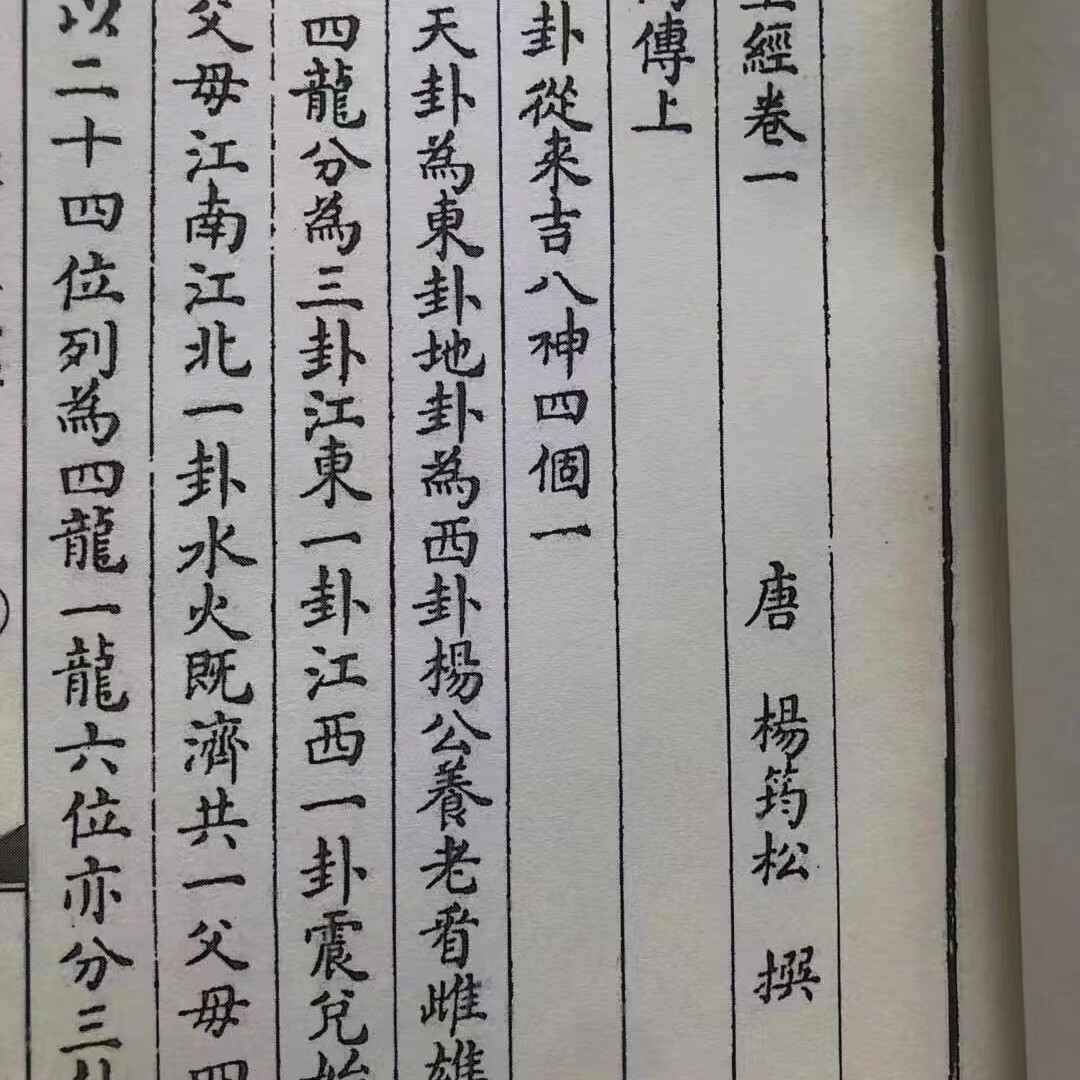 經卷一 唐 楊筠松 撰
傳上
卦從来吉八神四個一
天卦為東卦地卦為西卦楊公養老看雌雄
四龍分為三卦江東一卦江西一卦震兌始
父母江南江北一卦水火既濟共一父母四
以二十四位列為四龍一龍六位亦分三卦